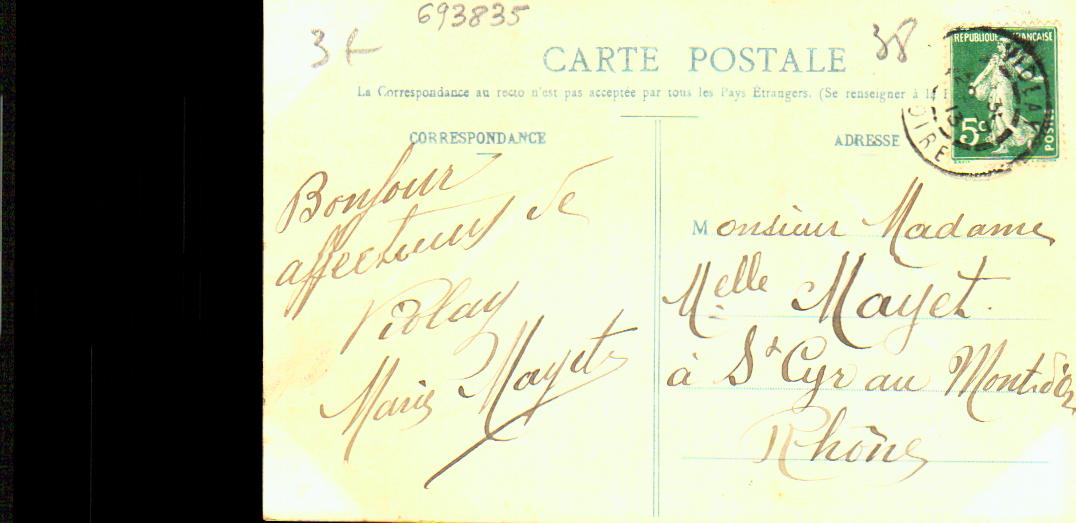 693835
3 f
38
CARTE POSTALE
La Correspondance au recto n'est pas acceptée par tous les Pays Étrangers. (Se renseigner à la
RÉPUBLIQUE FRANÇAISE
5c
POSTES
VIOLAY
LOIRE
CORRESPONDANCE
ADRESSE
Bonjour
affectueux de
Violay
Marie Mayet
Monsieur Madame
Melle Mayet.
à St Cyr au Mont d'Or
Rhône